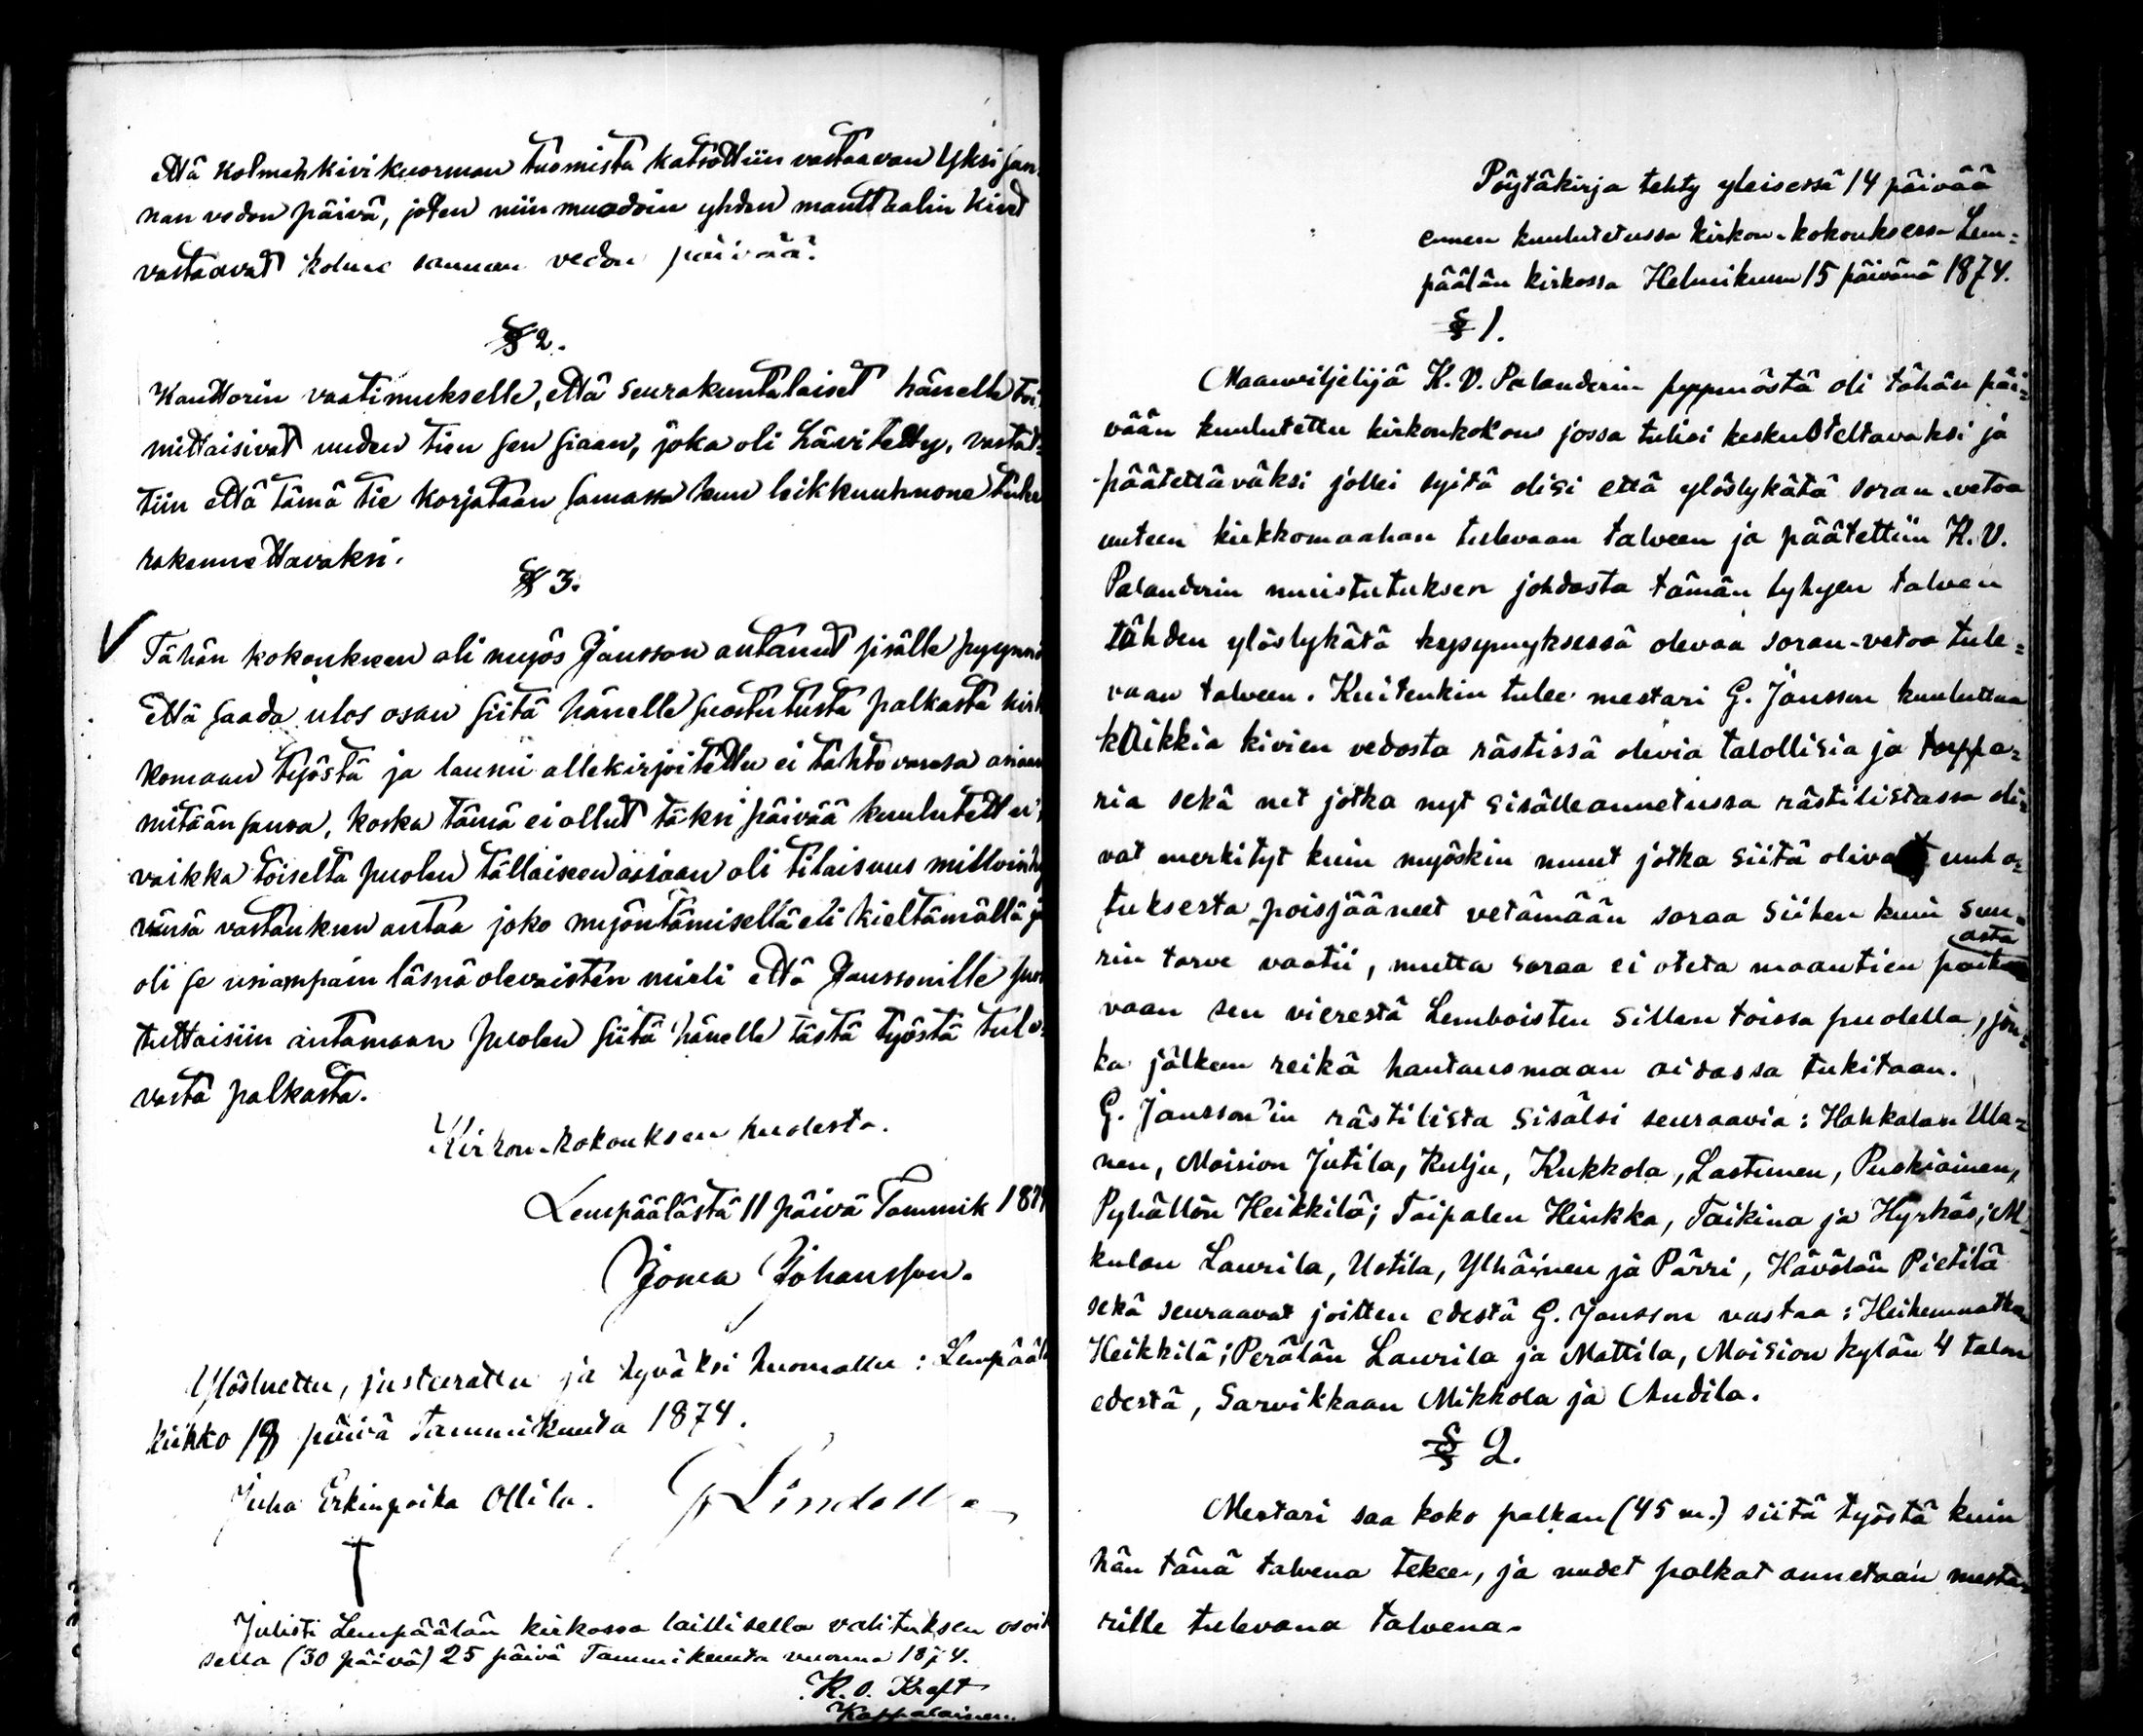 että kolmen kivikuorman tuomista katsottiin vastaavan yksi san-
nan vedon päivä, joten niin muodoin yhden manttaalin kivet
vastaavat kolme sannan vedon päivää.
§ 2.
Kanttorin vaatimukselle, että seurakuntalaiset hänelle toi-
mittaisivat uuden tien sen siaan, joka oli hävitetty, vastat-
tiin että tämä tie korjataan samassa kun leikkuuhuone tulee
rakennettavaksi.
§ 3.
Tähän kokoukseen oli myös Jansson antanut sisälle pyynnö
että saada ulos osan siitä hänelle suostutusta palkasta kirk
komaan työstä ja lausui allekirjoitettu ei tahtovansa asiaan
mitään sanoa, koska tämä ei ollut täksi päivää kuulutettu,
vaikka toiselta puolen tällaiseen asiaan oli tilaisuus milloin hy
vänsä vastauksen antaa joko myöntämisellä eli kieltämällä ja
oli se usiampain läsnäolevaisten mieli että Janssonille suos
tuttaisiin antamaan puolen siitä hänelle tästä työstä tule-
vasta palkasta.
Kirkon-kokouksen puolesta.
Lempäälästä 11 päivä Tammik 1874
Joma Johansson.
Ylösluettu, justeerattu ja hyväksi huomattu: Lempäälä
kirkko 18 päivä Tammikuuta 1874.
Juha Erkinpoika Ollila. G Lindell
Julisti Lempäälän kirkossa laillisella valituksen osoit
sella (30 päivä) 25 päivä Tammikuuta vuonna 1874.
K. O. Kraft
Kappalainen.
Pöytäkirja tehty yleisessä 14 päivää
ennen kuulutetussa kirkon-kokouksessa Lem-
päälän kirkossa Helmikuun 15 päivänä 1874.
§ 1.
Maanviljelijä K. V. Palanderin pyynnöstä oli tähän päi-
vään kuulutettu kirkonkokous jossa tulisi keskusteltavaksi ja
päätettäväksi jollei syitä olisi että ylöslykätä soran-vetoa
uuteen kirkkomaahan tulevaan talveen ja päätettiin K. V.
Palanderin muistutuksen johdosta tämän lyhyen talven
tähden ylöslykätä kysymyksessä olevaa soran-vetoa tule-
vaan talveen. Kuitenkin tulee mestari G. Jansson kuuluttaa
kaikkia kivien vedosta rästissä olevia talollisia ja torppa-
ria sekä net jotka nyt sisälleannetussa rästilistassa oli-
vat merkityt kuin myöskin muut jotka siitä olivat unho-
tuksesta poisjääneet vetämään soraa siihen kuin suu-
rin tarve vaatii, mutta soraa ei oteta maantien paikasta
vaan sen vierestä Lemboisten sillan toissa puolella, jon-
ka jälkeen reikä hautausmaan aidassa tukitaan.
G. Jansson'in rästilista sisälsi seuraavia: Hahkalan Ula-
nen, Moision Jutila, Kulju, Kukkola, Lastunen, Puskiainen,
Pyhällön Heikkilä; Taipalen Hinkka, Taikina ja Hyrkäs; M-
kulan Laurila, Uotila, Ylhäinen ja Pärri, Hävölän Pietilä
sekä seuraavat joitten edestä G. Jansson vastaa: Huhemmatkan
Heikkilä; Perälän Laurila ja Mattila, Moision kylän 4 talon
edestä, Sarvikkaan Mikkola ja Audila.
§ 2.
Mestari saa koko palkan (45 m.) siitä työstä kuin
hän tänä talvena tekee, ja uudet palkat annetaan mesta-
rille tulevana talvena.